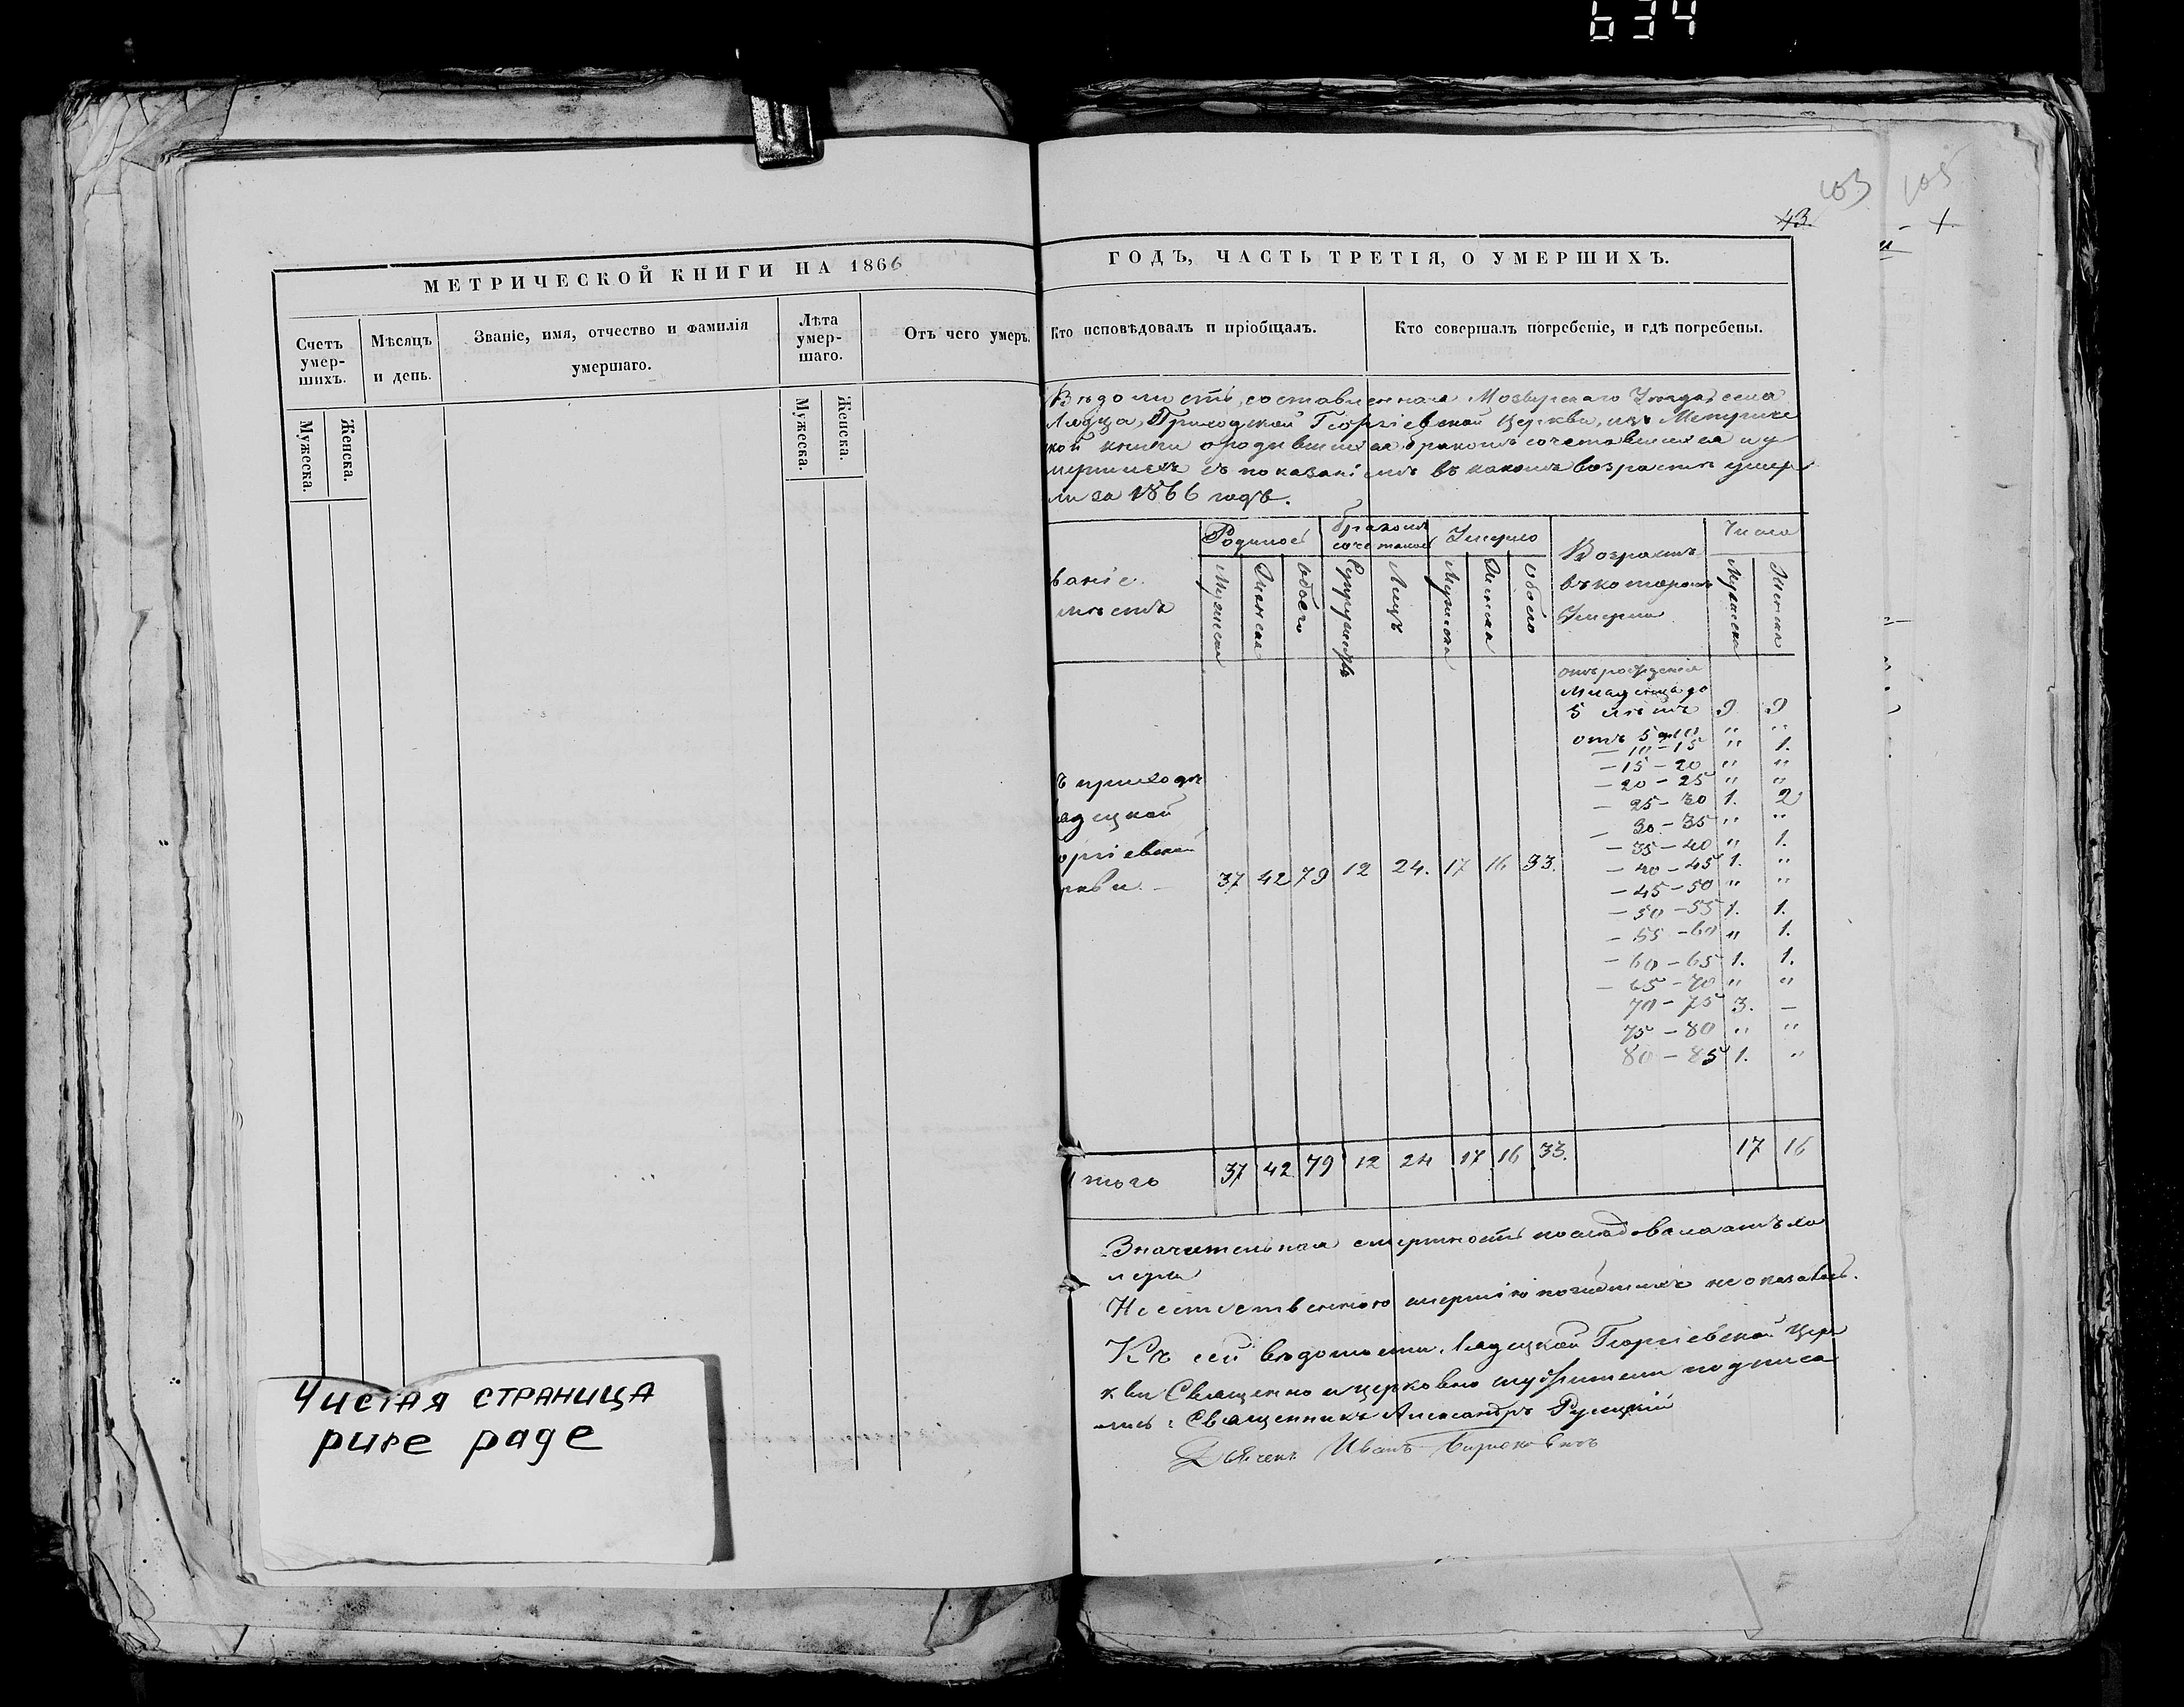 634
103 105
43.
МЕТРИЧЕСКОЙ КНИГИ НА 1866
Счетъ умер-
шихъ.
Мѣсяцъ
и день.
Званіе, имя, отчество и фамилія
умершаго.
Лѣта
умер-
шаго.
Отъ чего умеръ.
Мужеска.
Женска.
Мужеска.
Женска.
Чистая страница
pure page
ГОДЪ, ЧАСТЬ ТРЕТІЯ, О УМЕРШИХЪ.
Кто исповѣдовалъ и пріобщалъ.
Кто совершалъ погребеніе, и гдѣ погребены.
Вѣдомость, составленная Мозырскаго Уѣзда, села
Приходской Георгіевской Церкви, изъ Метриче
кой книги о родившихся, бракомъ сочетавшихся и у
мершихъ съ показаніемъ въ какомъ возрастѣ умер
ли за 1866 годъ.
ваніе
мѣстъ
Родилось
бракомъ
сочеталось
Умерло
Возрастъ
въ которомъ
Умерли
Число
Мужеска
Женска
обоего
Супружествъ
Лицъ
Мужеска
Женска
обоего
Мужеска
Женска
отъ рожденія
Младенца до
5 лѣтъ 9 9
отъ 5 до 10 " "
— 10 – 15 " 1.
— 15 – 20 " "
— 20 – 25 " "
— 25 – 30 1. 2
— 30 – 35 " "
— 35 – 40 " 1.
— 40 – 45 1. "
— 45 – 50 " "
— 50 – 55 1. 1.
— 55 – 60 " 1.
— 60 – 65 1. 1.
— 65 – 70 " "
70 – 75 3. —
75 – 80 " "
80 – 85 1. "
ъ приходѣ
ядецкой
оргіевской
ркви. — 37 42 79 12 24. 17 16 33.
того 37 42 79 12 24 17 16 33. 17 16
Значительная смертность последовала отъ хо
леры
Неестественною смертію погибшихъ не оказалось.
Къ сей вѣдомости Лядецкой Георгіевской Цер
кви Священно и церковно служители подписа
лись: Священникъ Александръ
Дьячекъ Иванъ